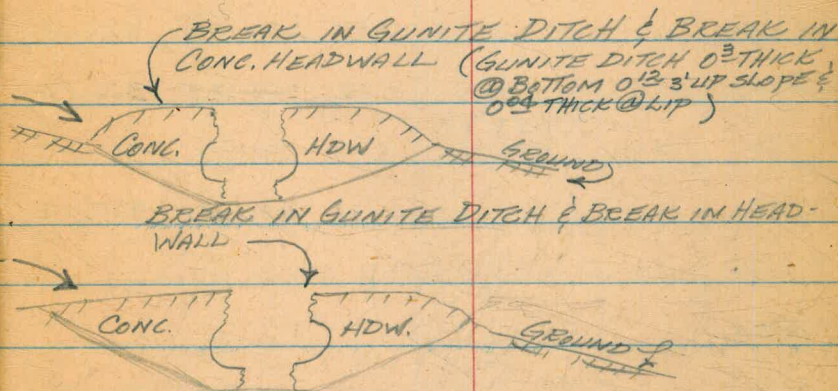 BREAK IN GUNITE DITCH & BREAK IN
CONC. HEADWALL (GUNITE DITCH 0³ THICK
@ BOTTOM 0¹² 3' UP SLOPE &
THICK @ LIP)
CONC. HDW GROUND
BREAK IN GUNITE DITCH & BREAK IN HEAD-
WALL
CONC. HDW. GROUND